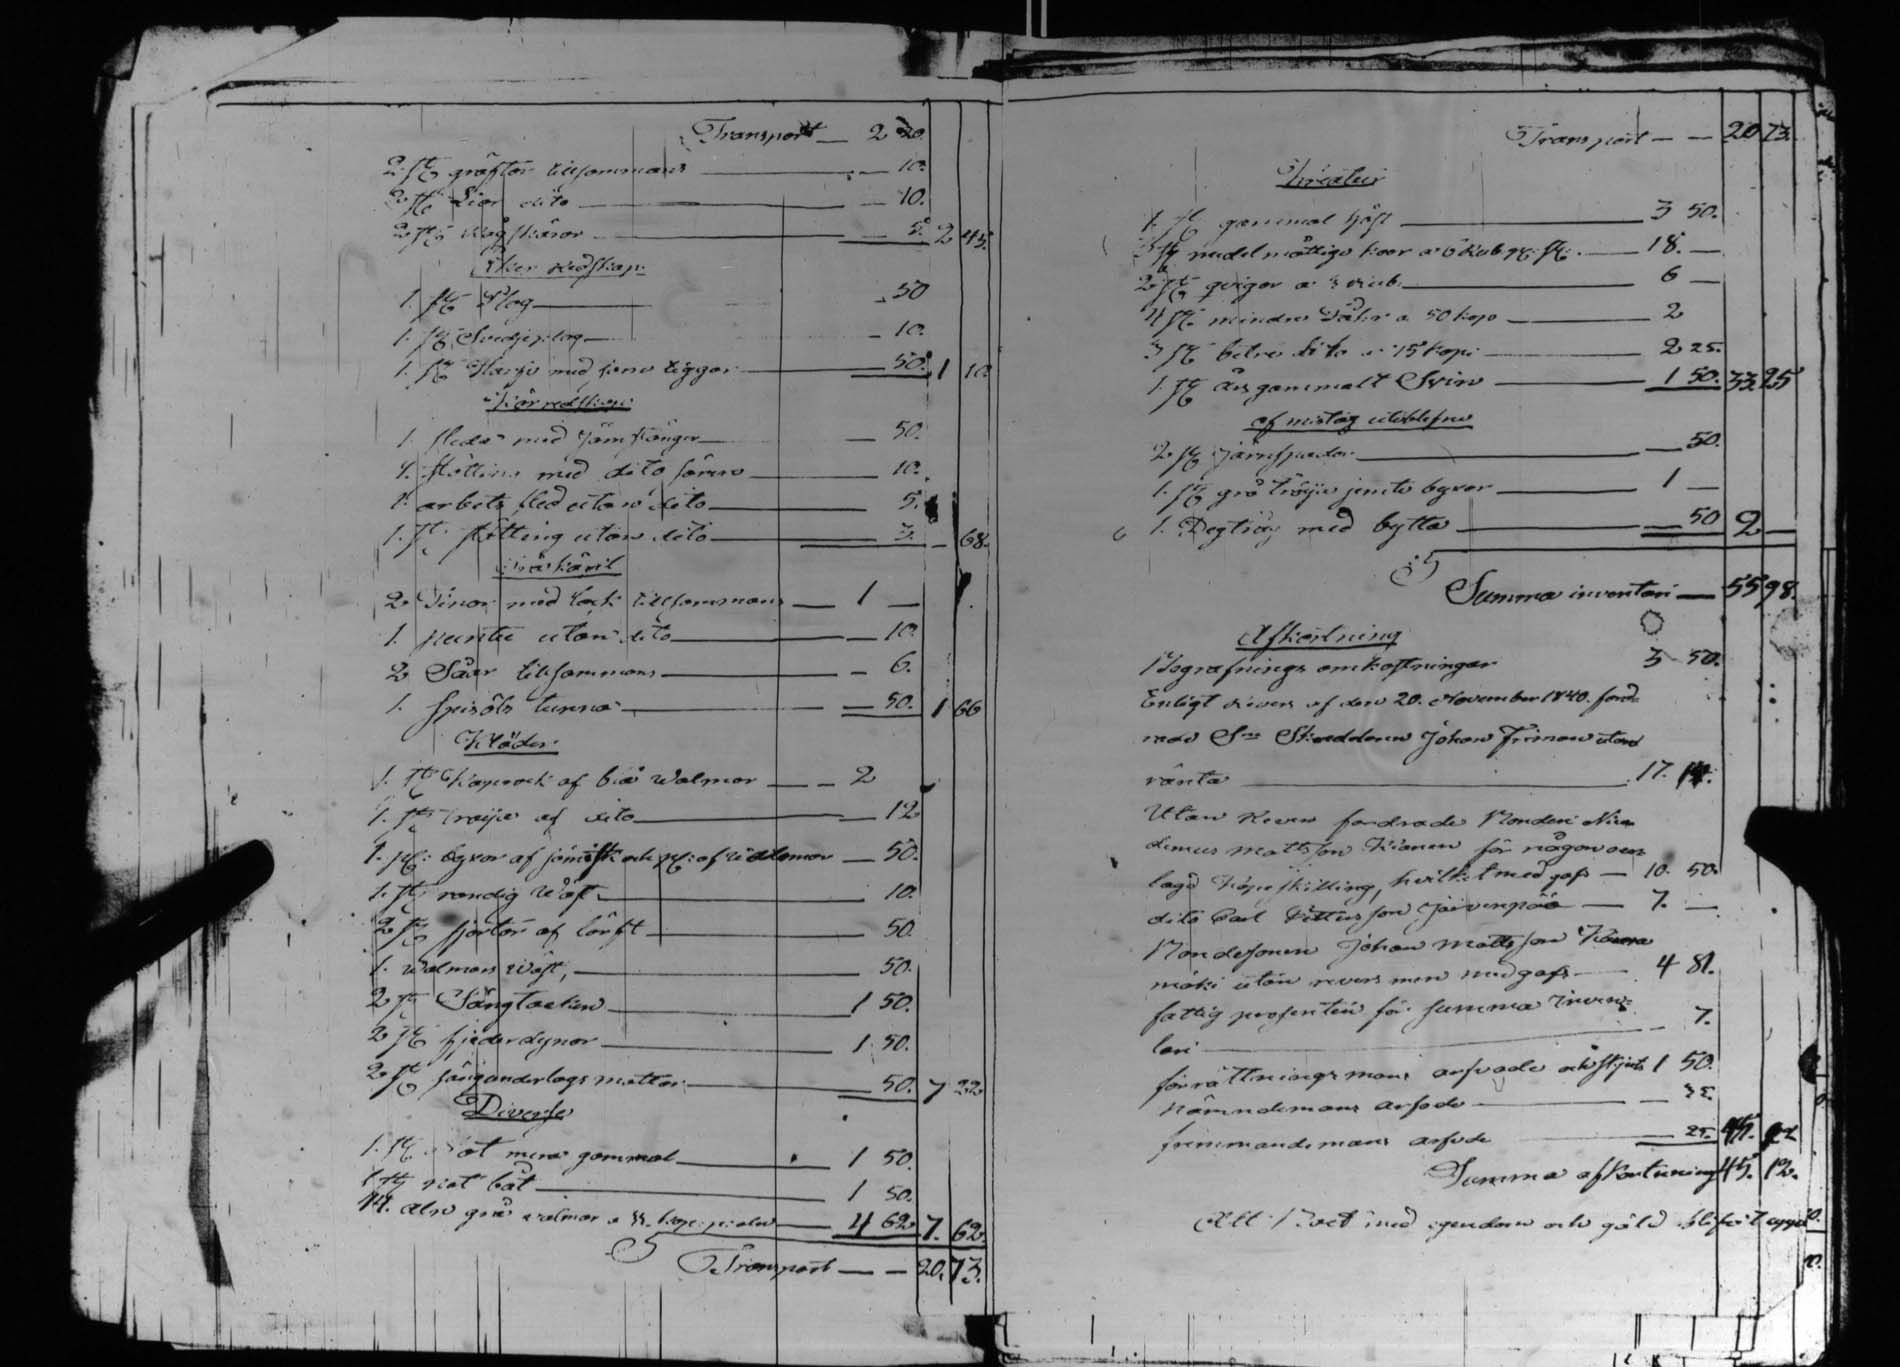 Transport — 2 20.
2 st gräftor tillsammans — 10.
2 st Liar dito — 10.
2 st skäror — 5. 2 45.
Åker redskap
1. st Plog — 50
1. st Svedjeplog — 10.
1. st Harf med järn tiggar — 50. 1 10.
Kör redskap
1. släde med järn stänger — 50.
1. stötting med dito — 10.
1. arbets släd utan dito — 5.
1. st stötting utan dito — 3. — 68.
Träkäril
2 Tinor med lock tillsammans — 1 —
1. utan dito — 10.
2 Såar tillsammans — 6.
1. spisöls tunna — 50. 1 66
Kläder
1. st Kaprock af blå Walmar — 2
1. st tröija af dito — 12
1. st: byxor af och st: af Walmar — 50.
1. st: randig Wäst — 10.
2 st skjortor af lärft — 50.
1. Walmars Wäst, — 50.
2 st Sängtäcken — 1 50.
2 st fjäderdynor — 1 50.
2 st sängunderlags mattor — 50. 7 22
Diverse
1. st Not mera gammal — 1 50.
1 st not båt — 1 50.
14. alnr grå walmar a 33. kop: — 4 62 7. 62.
S Transport — 20. 73.
Transport — 20 73.
Kreatur
1. st gammal häst — 3 50.
3 st medelmåttiga koor a 6 Rub pr: st: — 18. —
2 st qvigor a 3 rub. — 6 —
4 st mindre Får a 50 kop — 2
3 st bätre dito a 75 kop: — 2 25.
1. st års gammalt Svin — 1 50. 33 25
af mistag uteblefne
2 st järnspadar — 50.
1. st grå tröija jemte byxor — 1 —
1. Degtråg med bytta — 50 2 —
S Summa inventari — 55 98.
Afkortning
Begrafnings omkostningar 3 50.
Enligt revers af den 20. November 1840. ford-
rade Skräddaren Johan utan
ränta — 17.
Utan Revers fordrade Bonden Nico-
demus Mattsson för någon
lagd Köpeskilling, hvilket medgafs — 10. 50.
dito Carl Järvenpää — 7. —
Bondesonen Johan Mattsson
mäki utan revers men medgafs — 4 81.
fattig prosenten för summa inven-
tari — 7.
förrättningsmans arfvode och skjuts 1 50.
Nämndemans arfode — 35.
främmande mans arfode — 25. 45. 12
Summa afkortning 45. 12.
Allt med egendom och gäld blifvit uppgifvit